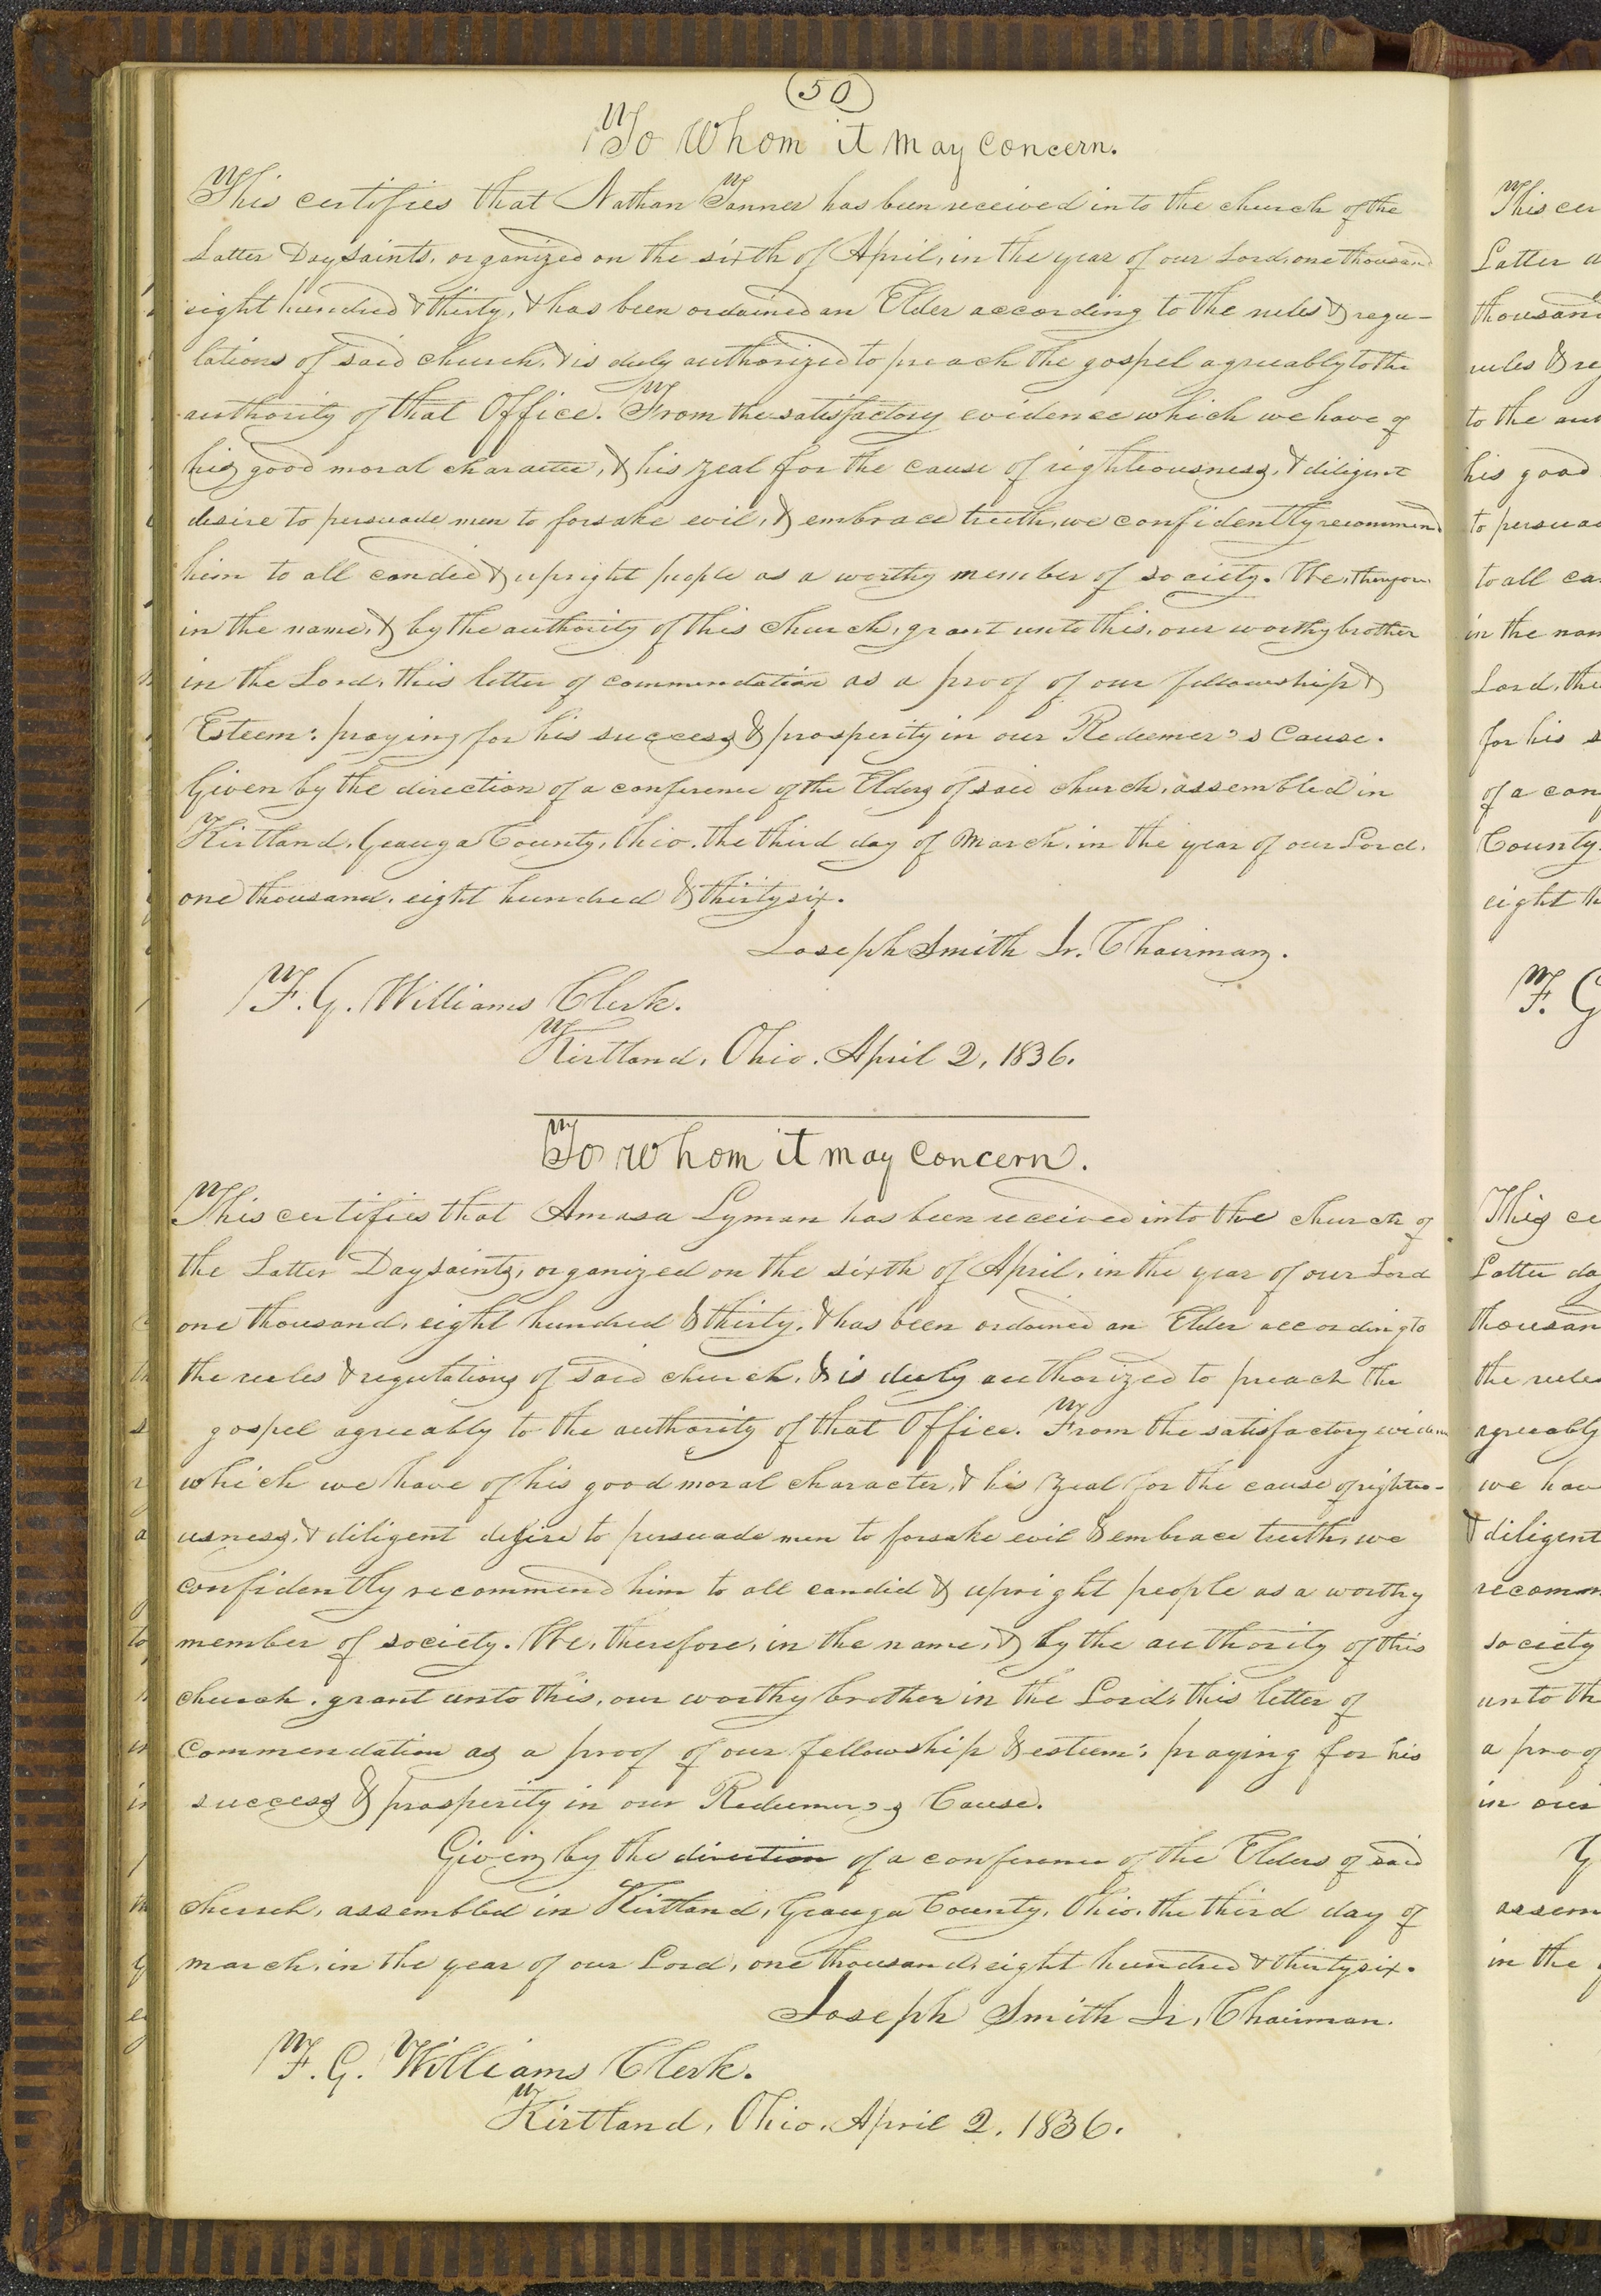 (50)
To Whom it may Concern.
This certifies that Nathan Tanner has been received into the church of the
Latter Day saints, organized on the sixth of April, in the year of our Lord, one thousand
eight hundred & thirty, & has been ordained an Elder according to the rules & regu-
lations of said church, & is duly authorized to preach the gospel agreeably to the
authority of that Office. From the satisfactory evidence which we have of
his good moral character, & his zeal for the cause of righteousness, & diligent
desire to persuade men to forsake evil, & embrace truth, we confidently recommend
him to all candid & upright people as a worthy member of society. We, therefore
in the name, & by the authority of this church, grant unto this, our worthy brother
in the Lord, this letter of commendation as a proof of our fellowship &
Esteem: praying for his success & prosperity in our Redeemer's Cause.
Given by the direction of a conference of the Elders of said church, assembled in
Kirtland, Geauga County, Ohio, the third day of March, in the year of our Lord,
one thousand, eight hundred & thirty six.
Joseph Smith Jr. Chairman.
F. G. Williams Clerk.
Kirtland, Ohio, April 2, 1836.
To whom it may Concern.
This certifies that Amasa Lyman has been received into the church of
the Latter Day saints, organized on the sixth of April, in the year of our Lord
one thousand, eight hundred & thirty, & has been ordained an Elder according to
the rules & regulations of said church, & is duly authorized to preach the
gospel agreeably to the authority of that Office. From the satisfactory evidence
which we have of his good moral character, & his zeal for the cause of righteo-
usness, & diligent desire to persuade men to forsake evil & embrace truth, we
confidently recommend him to all candid & upright people as a worthy
member of society. We, therefore, in the name, & by the authority of this
church, grant unto this, our worthy brother in the Lord, this letter of
Commendation as a proof of our fellowship & esteem; praying for his
success & prosperity in our Redeemer's Cause.
Given by the direction of a conference of the Elders of said
church, assembled in Kirtland, Geauga County, Ohio, the third day of
march, in the year of our Lord, one thousand, eight hundred & thirty six.
Joseph Smith Jr, Chairman.
F. G. Williams Clerk.
Kirtland, Ohio, April 2, 1836.
This cer
Latter d
thousand
rules & re
to the aut
his good
to persua
to all ca
in the nam
Lord, the
for his s
of a con
County
eight h
F. G
This ce
Latter da
thousan
the rules
agreeably
we hav
& diligent
recomm
society
unto th
a proof
in our
G
assem
in the